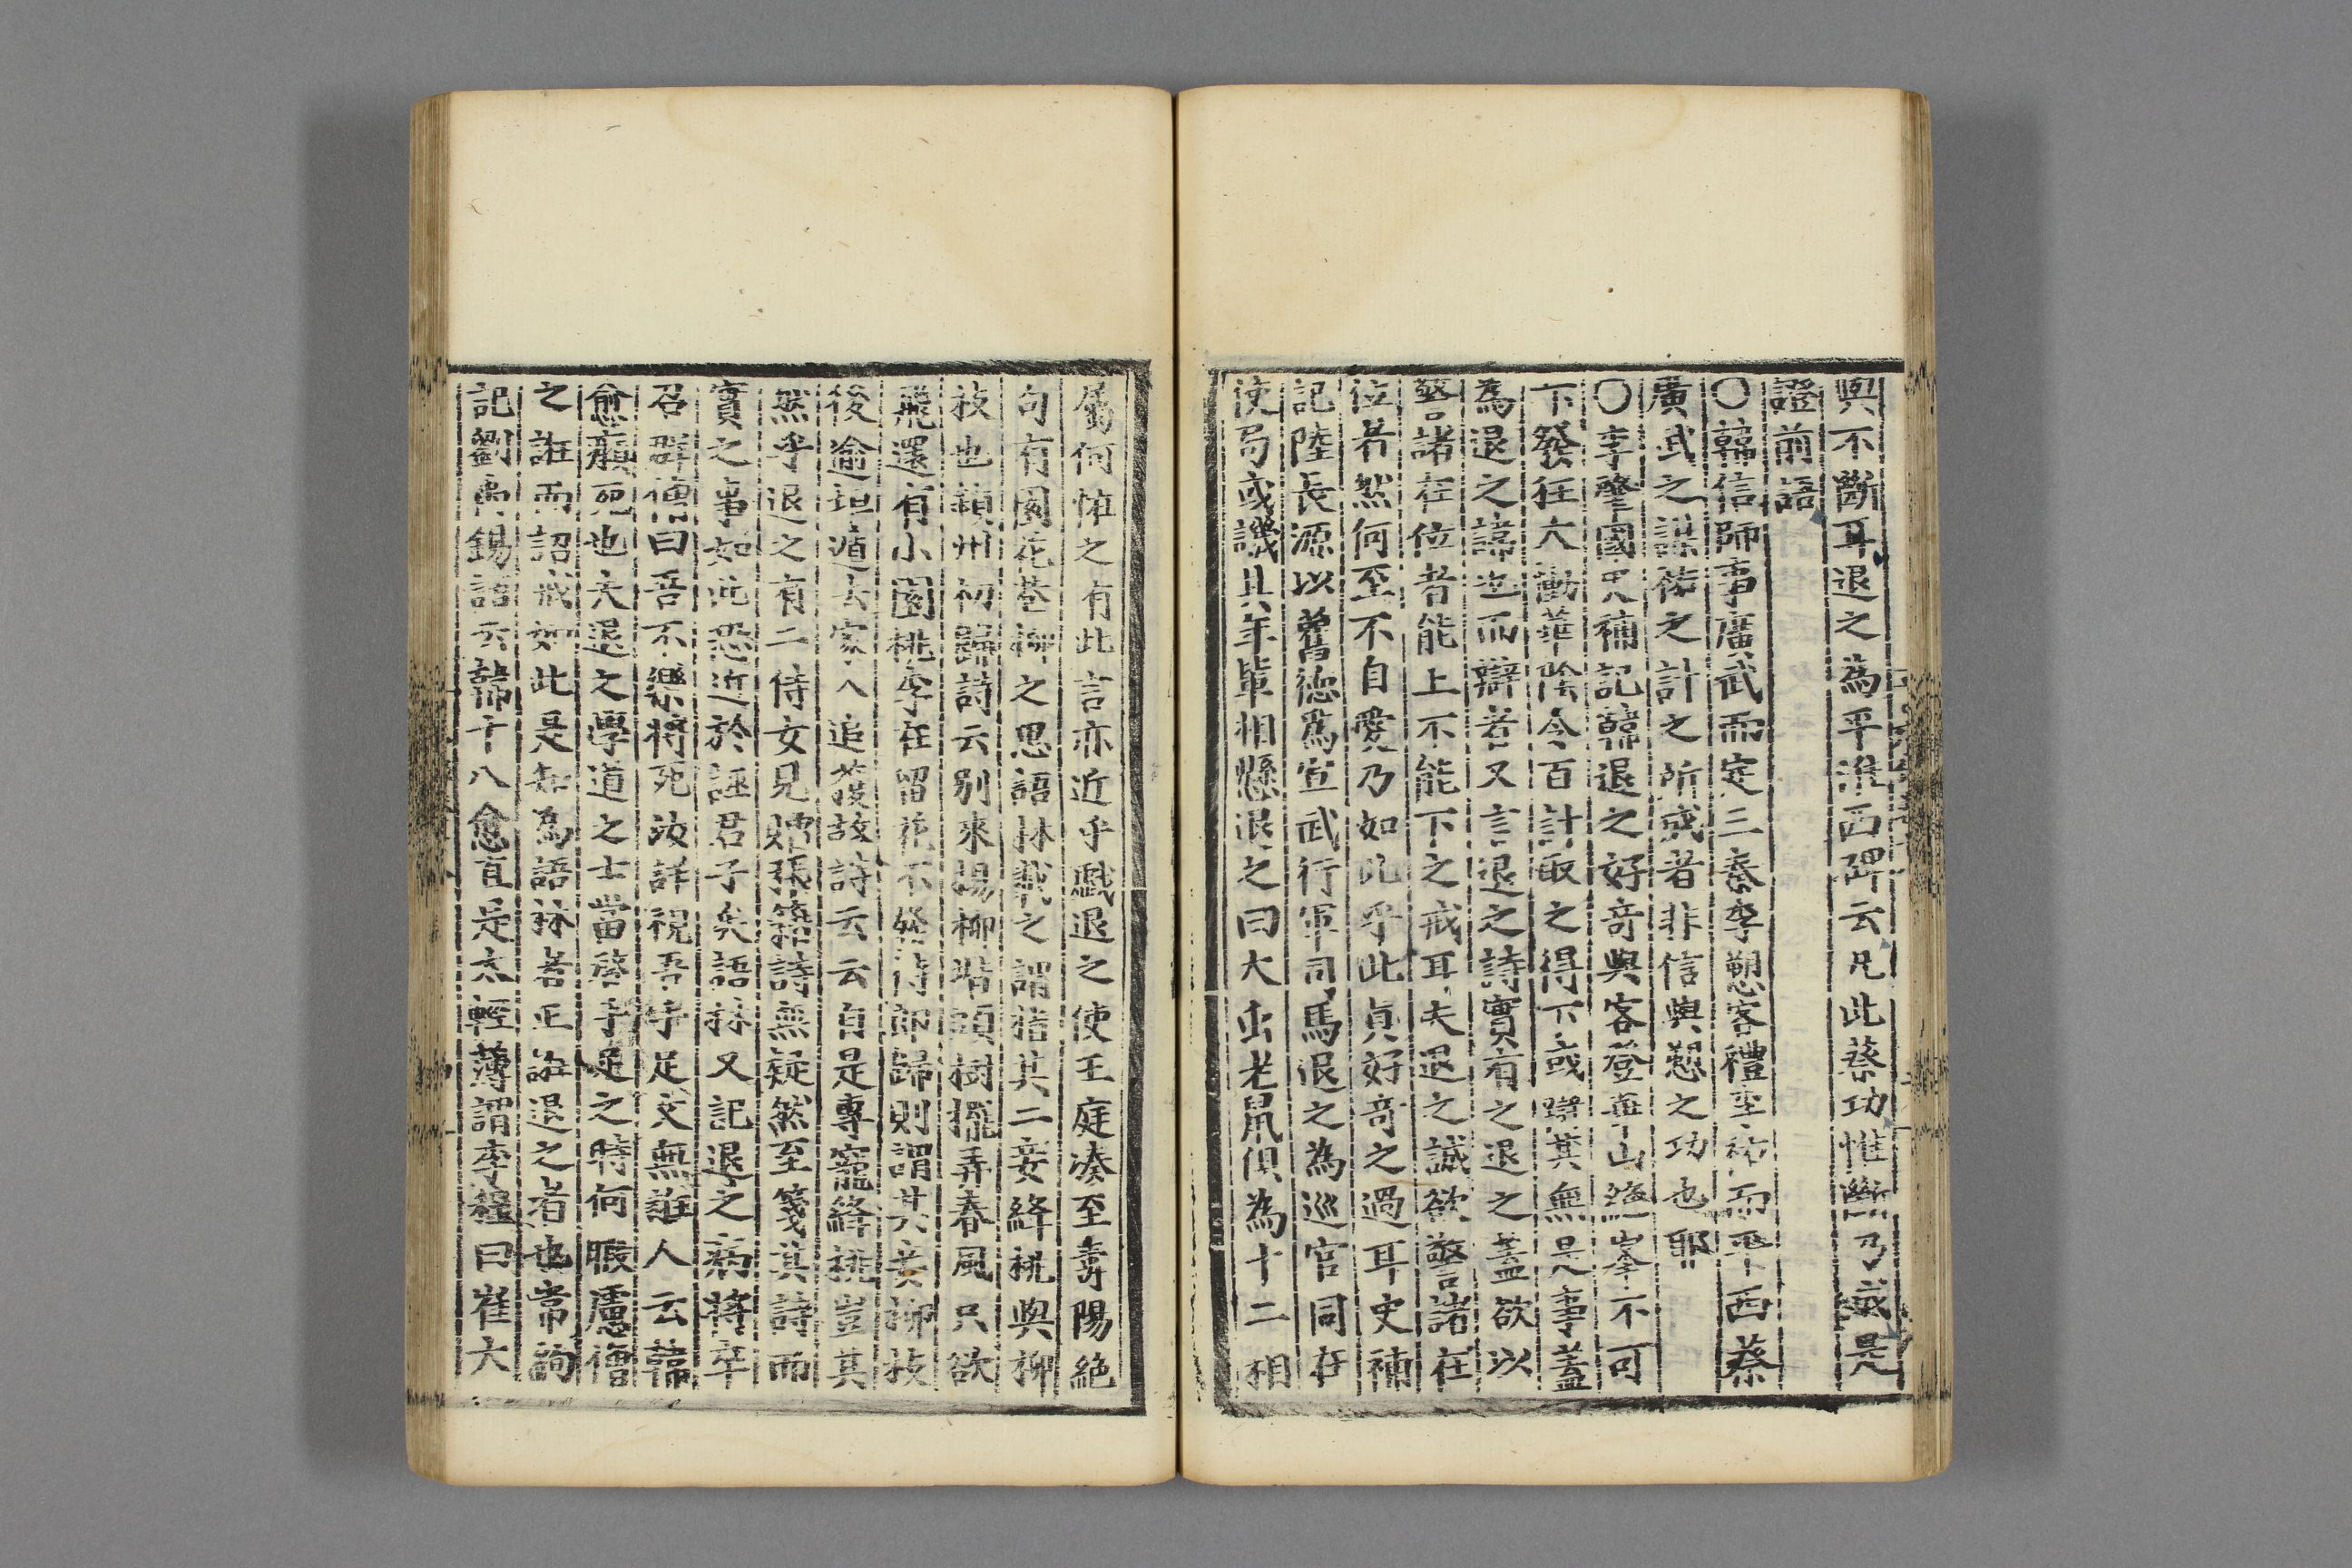 與不斷耳退之為平淮西碑云凡此蔡功惟斷乃成是
證前語
○韓信師事廣武而定三秦李愬客禮至祐而平西蔡
廣武之謀祐之計之所或者非信與愬之功也耶
○李肇國史補記韓退之好奇與客登華山絶峯不可
下發狂大慟華陰令百計取之得下或辯其無是事蓋
為退之諱也而辯者又言退之詩實有之退之蓋欲以
警諸在位者能上不能下之戒耳夫退之誠欲警諸在
位者然何至不自愛乃如此乎此真好奇之過耳史補
記陸長源以舊德為宣武行軍司馬退之為巡官同在
使局或譏其年輩相懸退之曰大虫老鼠俱為十二相
屬何怪之有此言亦近乎戲退之使王庭湊至壽陽絶
句有園花巷柳之思語林載之謂指其二妾絳桃與柳
枝也穎州初歸詩云別來楊柳街頭樹擺弄春風只欲
飛還有小園桃李在留花不發待郎歸則謂其妾柳枝
後逾垣遁去家人追獲故詩云云自是專寵絳桃豈其
然乎退之有二侍女見於張籍詩無疑然至箋其詩而
實之事如此恐近於誣君子矣語林又記退之病將卒
召群僧曰吾不樂將死汝詳視吾手足支無誑人云韓
愈癩死也夫退之學道之士當啓手足之時何暇慮僧
之誑而詔戒如此是知為語林者正誣退之者也常詢
記劉禹錫語云韓十八愈直是太輕薄謂李程曰崔大